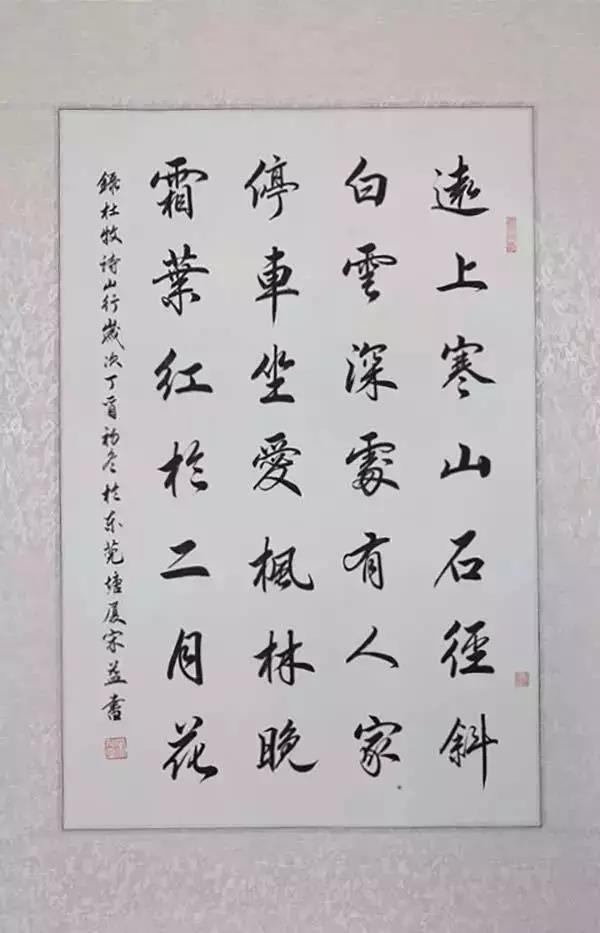 遠上寒山石徑斜
白雲深處有人家
停車坐愛楓林晚
霜葉紅於二月花
錄杜牧詩山行歲次丁酉初冬於东莞塘厦宋益書